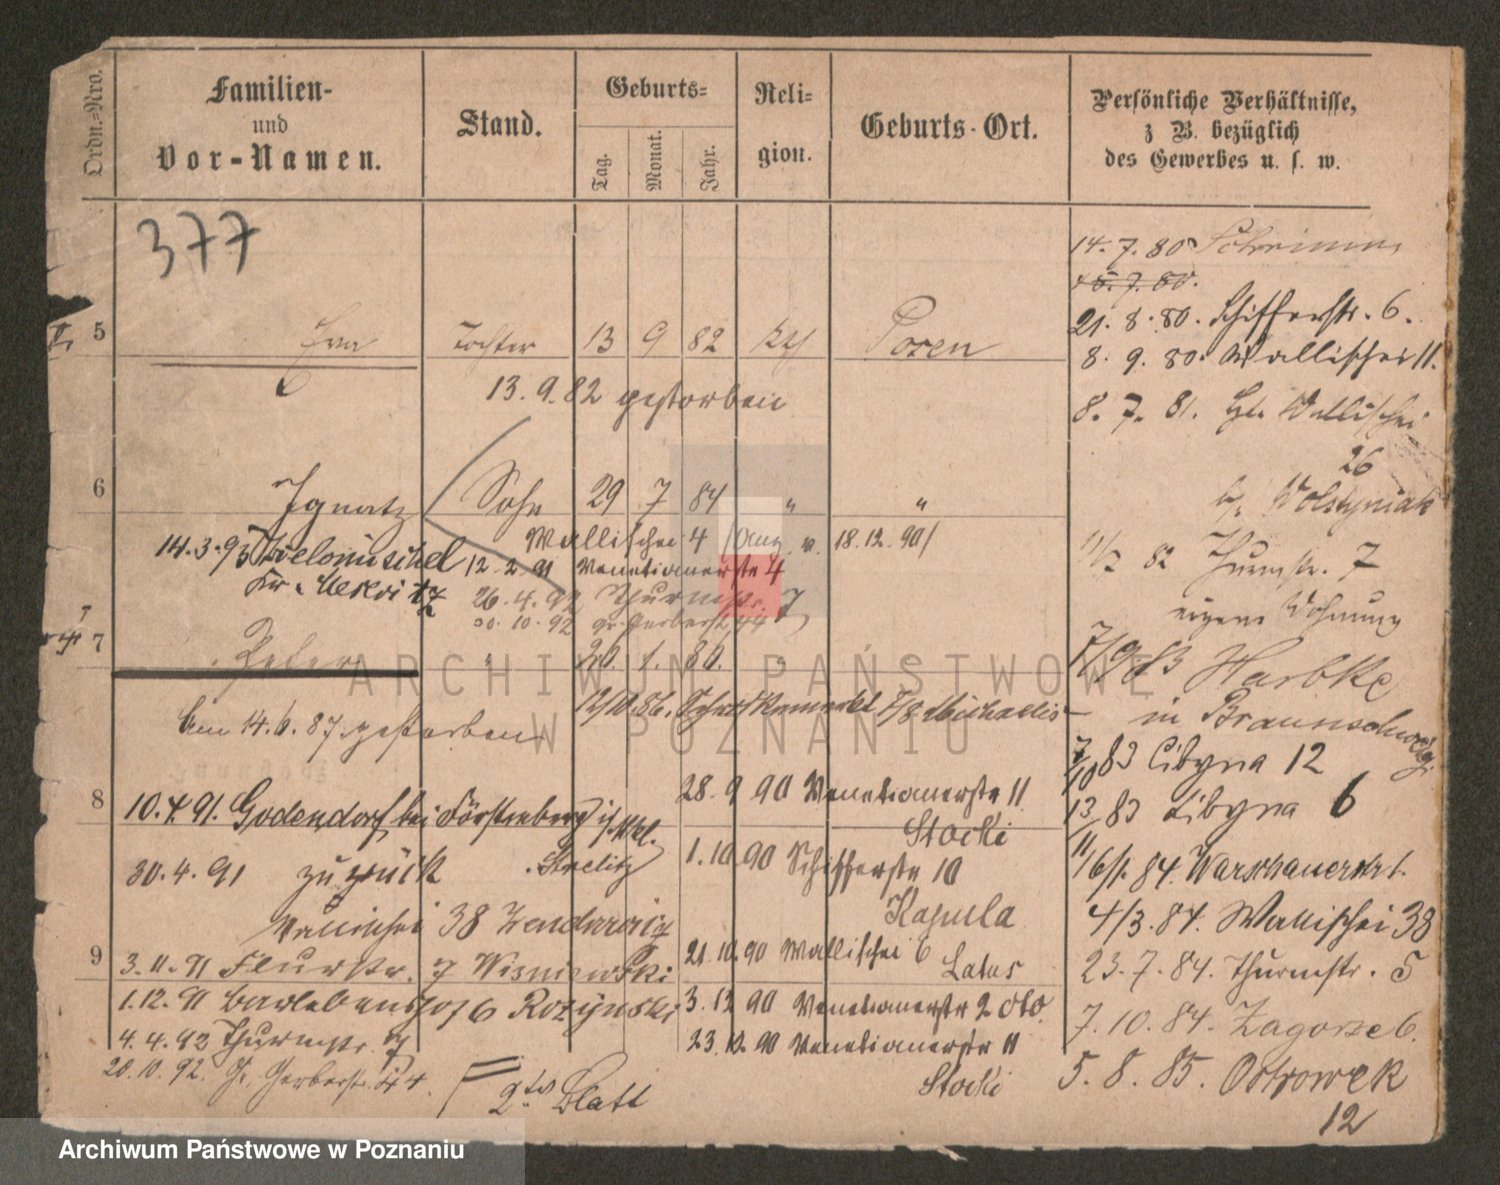 Ordn.-Nro.
Familien-
und
Vor-Namen.
Stand.
Geburts-
Tag.
Monat.
Jahr.
Reli-
gion.
Geburts-Ort.
Persönliche Verhältnisse,
z B. bezüglich
des Gewerbes u. s. w.
377
5 Eva Tochter 13 9 82 kth Posen
13.9.82 gestorben
6 Ignatz Sohn 29 7 84 " "
Wallischei 4 18.12.90
14.3.93
12.2.91 Venetianerstr 4
26.4.92 Thurmstr. 7
30.10.92 gr. Gerberst 44
7 Peter " 26. 1. 86. "
12/10.86.
Am 14.6.87. gestorben
8
28.9 90 Venetianerstr 11
Stocki
10.4.91. Godendorf bei Fürstenberg i/Mkl.
Strelitz
30.4.91 zurück
1.10 90 Schifferstr 10
Kapula
Wallischei 38
9
21.10.90 Wallischei 6
Latus
3.11.91 Flurstr. 7 Wisniewski
1.12.91 6 Rozynski
3.12 90 Venetianerstr 2
4.4.92 Thurmstr. 7
23.12.90 Venetianerstr 11
Stocki
20.10.92. Gr. Gerberstr. 44.
2tes Blatt
14.7.80 Schrimm
21.8.80. Schifferstr. 6.
8.9.80. Wallischei 11.
8.7.81. Wallischei
26
b/. Wolstyniak
11/2 82 Thurmstr. 7
eigene Wohnung
7/9 83 Harbke
in Braunschweig.
7/10 83 Cibyna 12
13/11 83 Cibyna 6
16/1. 84. Warschauerstr
4/3.84. Wallischei 38
23.7.84. Thurmstr. 5
7.10.84. Zagorze 6.
5.8.85. Ostrowek
12
ARCHIWUM PAŃSTWOWE
W POZNANIU
Archiwum Państwowe w Poznaniu